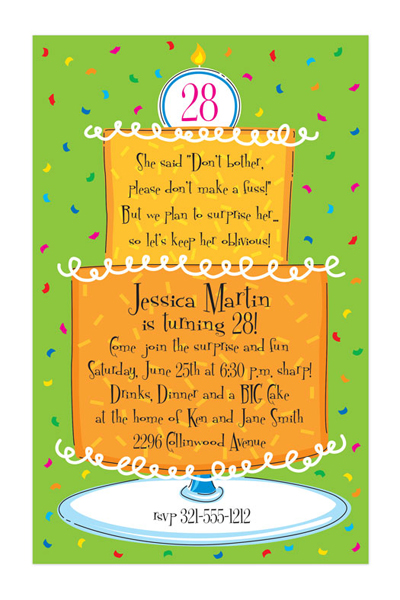 28
She said "Don't bother,
please don't make a fuss!"
But we plan to surprise her...
so let's keep her oblivious!
Jessica Martin
is turning 28!
Come join the surprise and fun
Saturday, June 25th at 6:30 p.m. sharp!
Drinks, Dinner and a BIG Cake
at the home of Ken and Jane Smith
2296 Collinwood Avenue
rsvp 321-555-1212